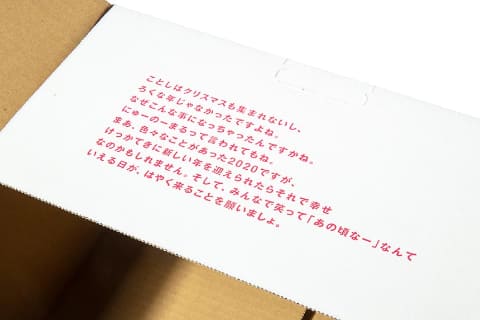 ことしはクリスマスも集まれないし、
ろくな年じゃなかったですよね。
なぜこんな事になっちゃったんですかね。
にゅーのーまるって言われてもね。
まあ、色々なことがあった2020ですが、
けっかてきに新しい年を迎えられたらそれで幸せ
なのかもしれません。そして、みんなで笑って「あの頃なー」なんて
いえる日が、はやく来ることを願いましょ。